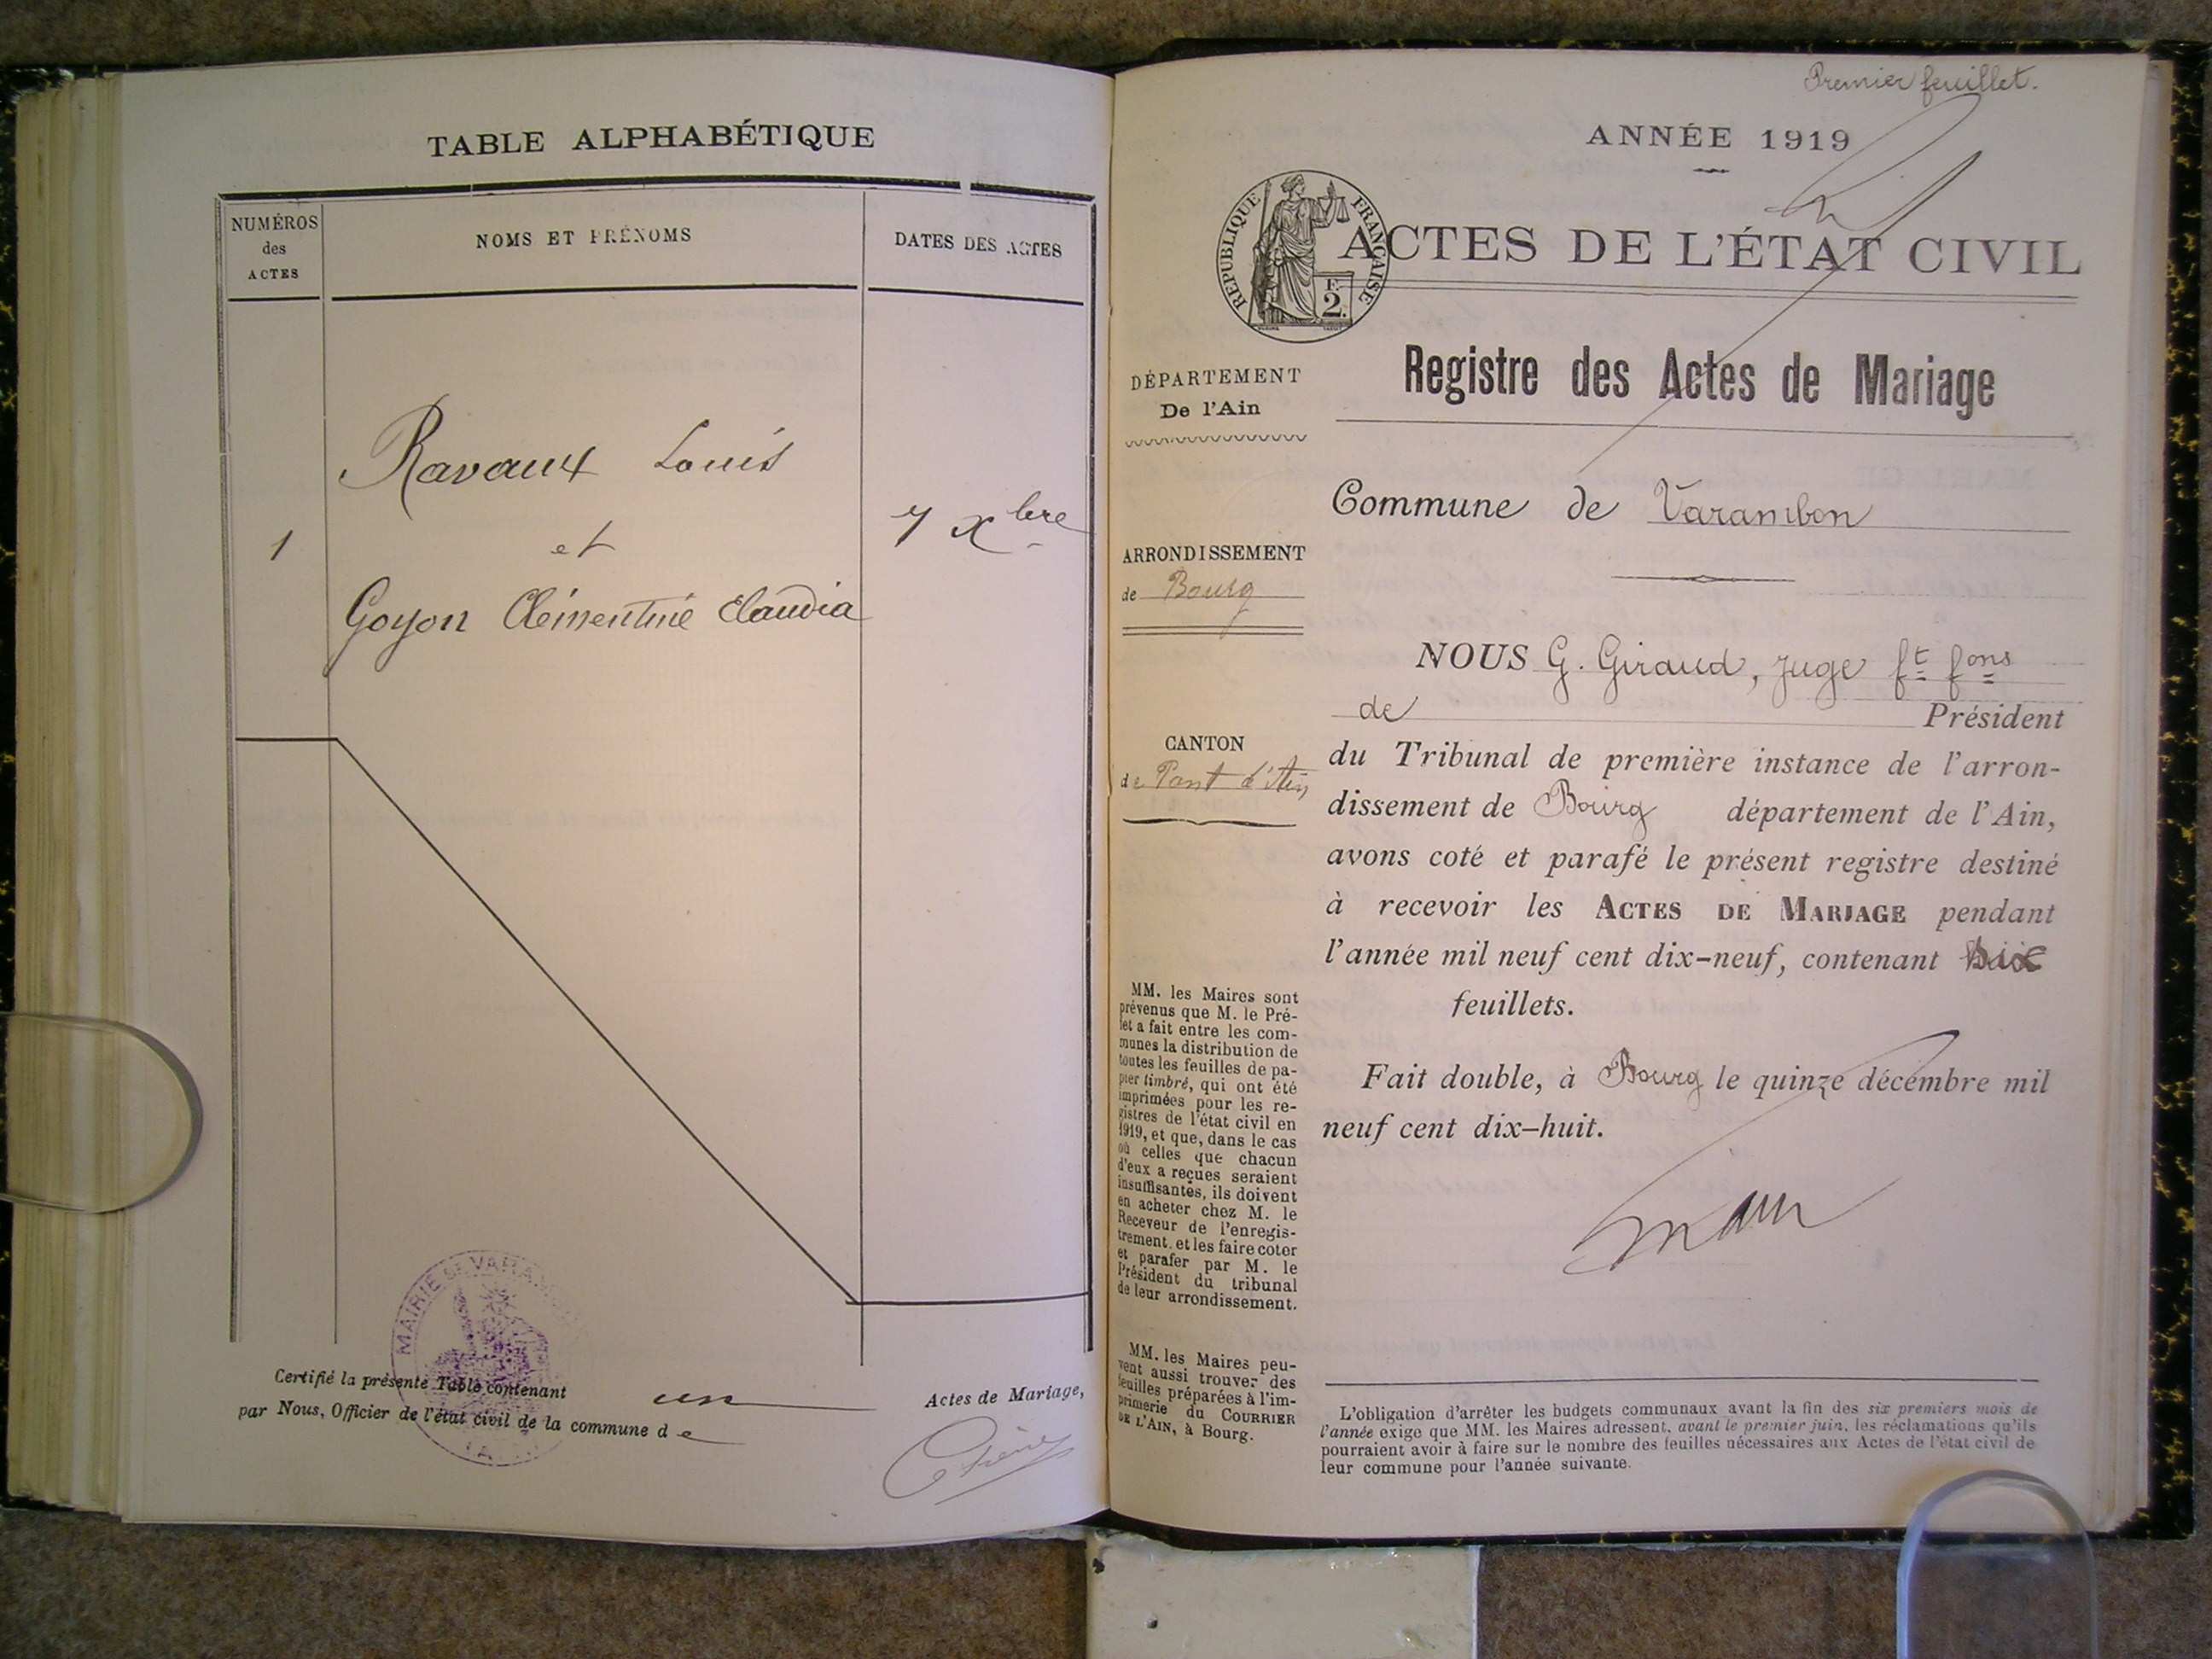 TABLE ALPHABÉTIQUE
NUMÉROS
des
ACTES
NOMS ET PRÉNOMS
DATES DES ACTES
Ravaux Louis
1
et
7 Xbre
Goyon Clémentine Claudia
MAIRIE DE VARAM
Certifié la présente Table contenant un Actes de Mariage,
par Nous, Officier de l'état civil de la commune de
Premier feuillet.
ANNÉE 1919
RÉPUBLIQUE FRANÇAISE
F.
2.
ACTES DE L'ÉTAT CIVIL
Registre des Actes de Mariage
DÉPARTEMENT
De l'Ain
Commune de Varambon
ARRONDISSEMENT
de Bourg
CANTON
de Pont d'Ain
NOUS G. Giraud, juge ft fons
de Président
du Tribunal de première instance de l'arron-
dissement de Bourg département de l'Ain,
avons coté et parafé le présent registre destiné
à recevoir les ACTES DE MARIAGE pendant
l'année mil neuf cent dix-neuf, contenant
feuillets.
Fait double, à Bourg le quinze décembre mil
neuf cent dix-huit.
MM. les Maires sont
prévenus que M. le Pré-
fet a fait entre les com-
munes la distribution de
toutes les feuilles de pa-
pier timbré, qui ont été
imprimées pour les re-
gistres de l'état civil en
1919, et que, dans le cas
où celles que chacun
d'eux a reçues seraient
insuffisantes, ils doivent
en acheter chez M. le
Receveur de l'enregis-
trement, et les faire coter
et parafer par M. le
Président du tribunal
de leur arrondissement.
MM. les Maires peu-
vent aussi trouver des
feuilles préparées à l'im-
primerie du COURRIER
DE L'AIN, à Bourg.
L'obligation d'arrêter les budgets communaux avant la fin des six premiers mois de
l'année exige que MM. les Maires adressent, avant le premier juin, les réclamations qu'ils
pourraient avoir à faire sur le nombre des feuilles nécessaires aux Actes de l'état civil de
leur commune pour l'année suivante.